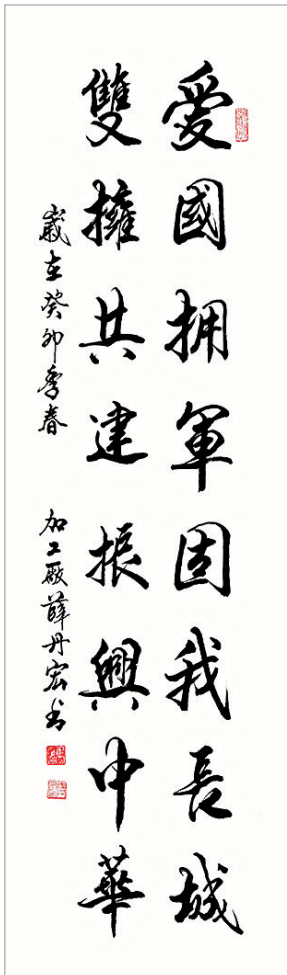 愛國拥軍固我長城
雙擁共建振興中華
歲在癸卯季春
加工厰薛丹宏书